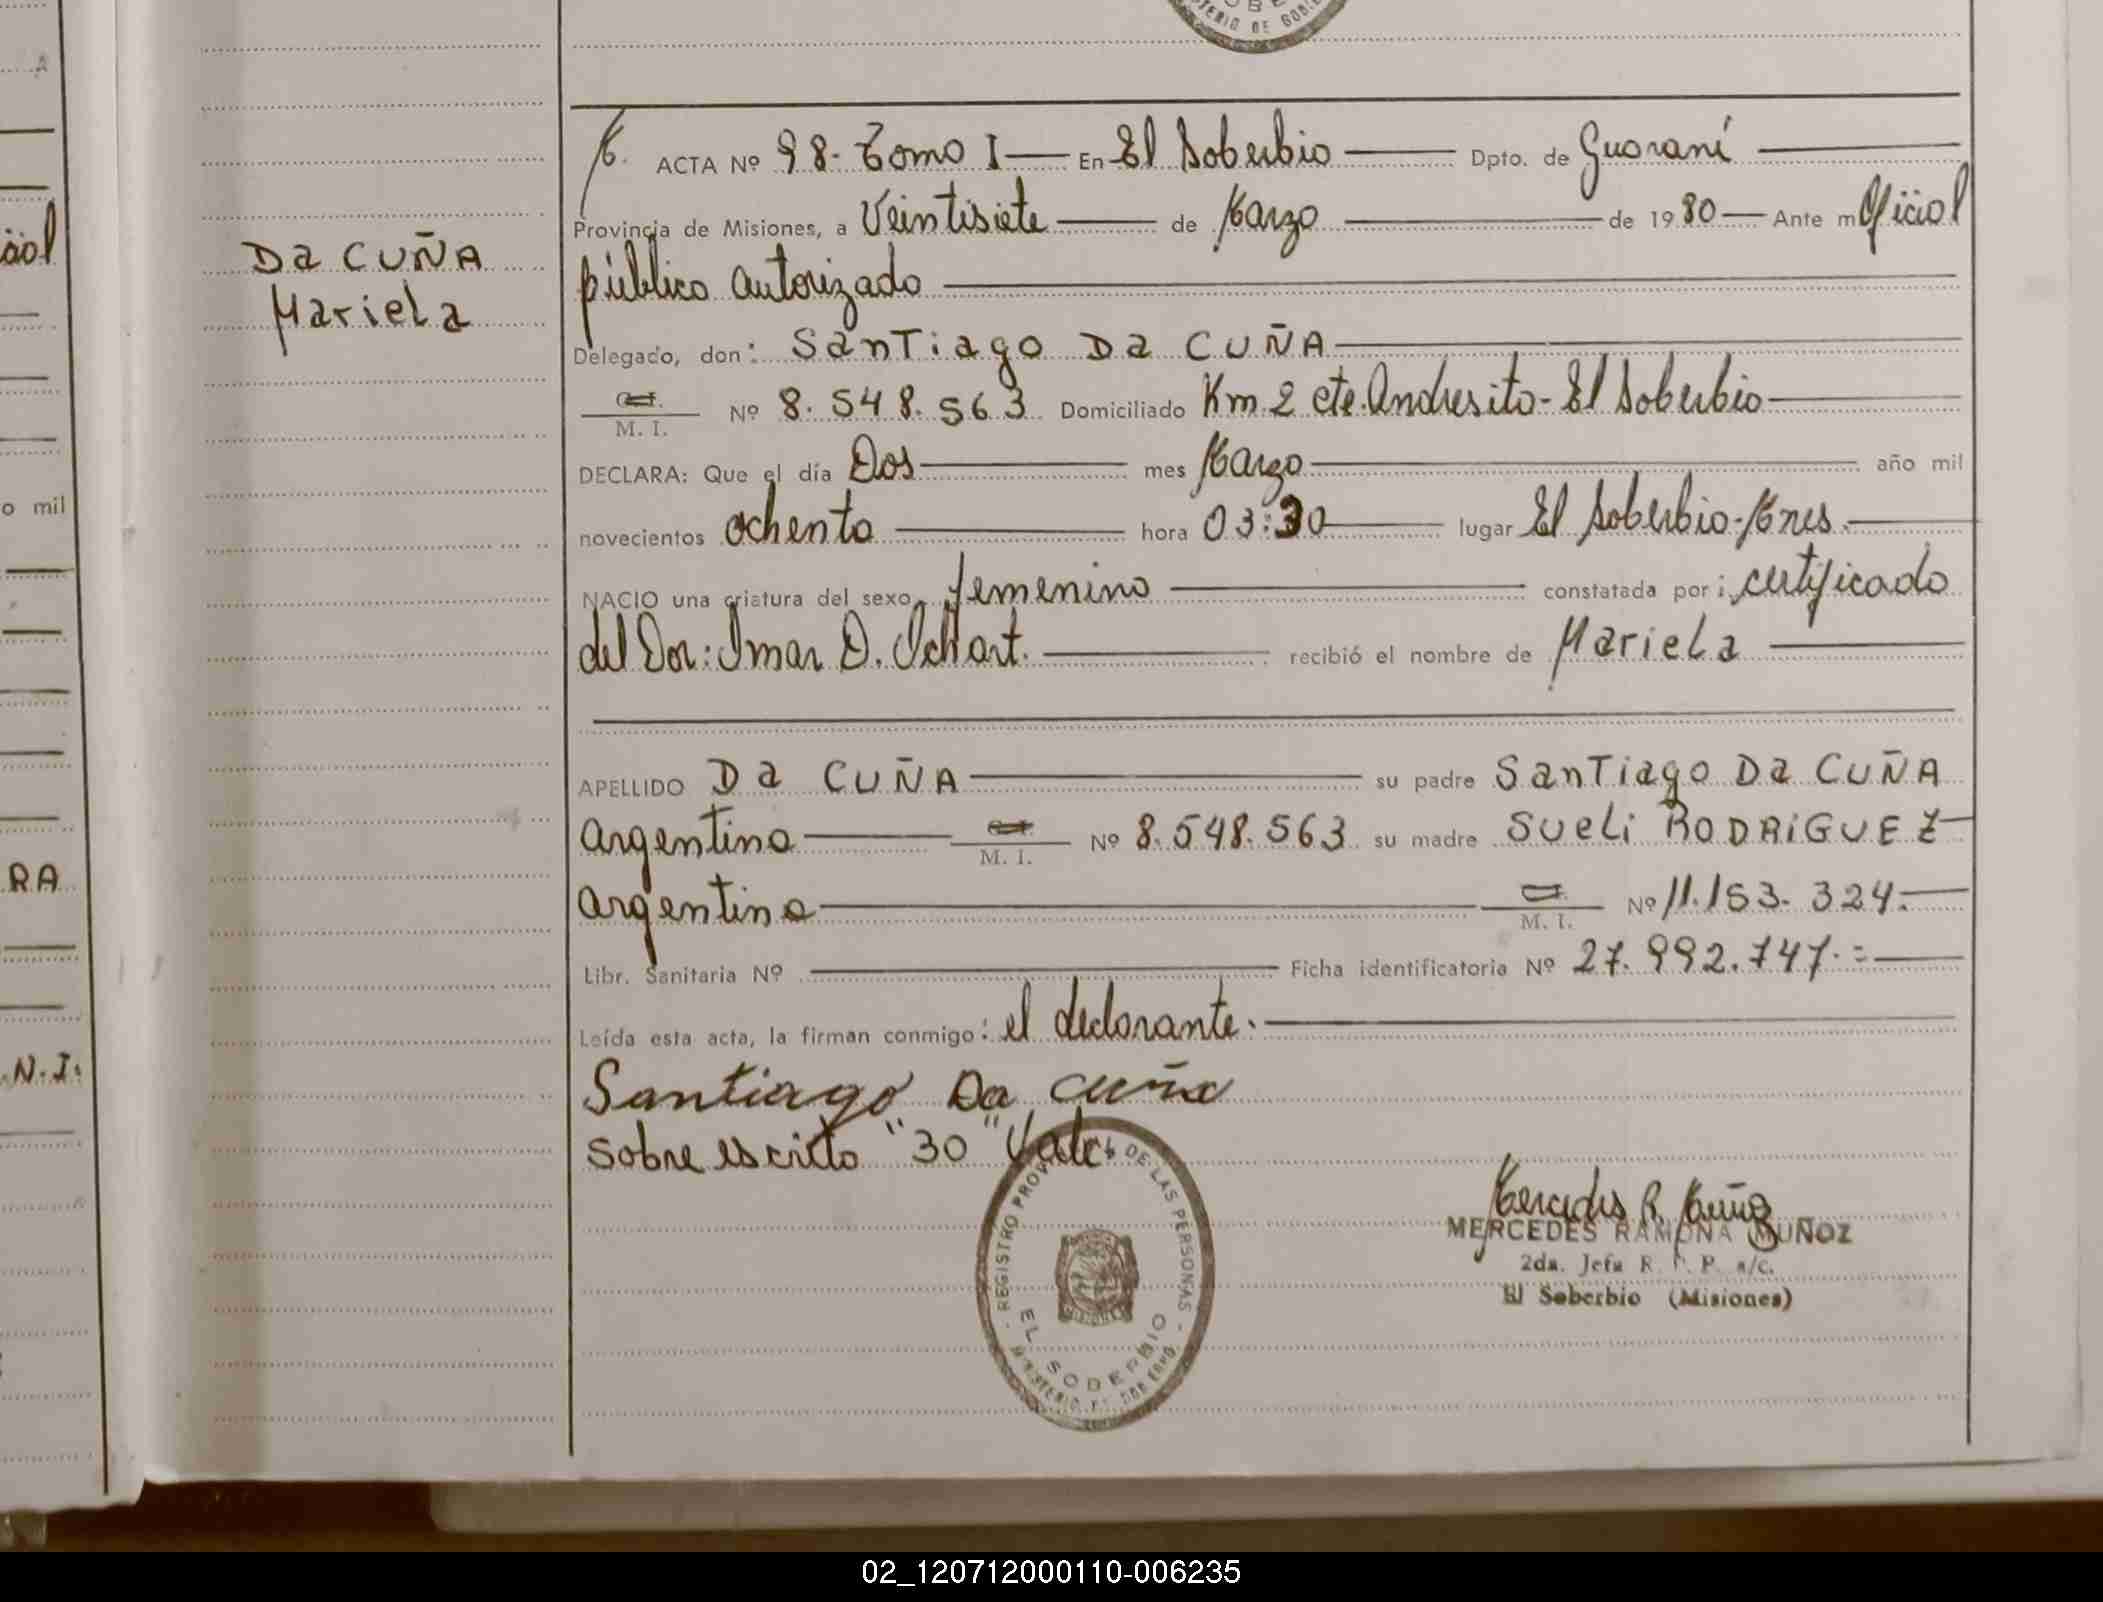 DA CUÑA
Mariela
ACTA Nº 98- Tomo I En El Soberbio Dpto. de Guaraní
Provincia de Misiones, a Veintisiete de Marzo de 1980 Ante m Oficial
público autorizado
Delegado, don: Santiago DA CUÑA
M. I. Nº 8.548.563 Domiciliado Km 2 cte. Andresito- El Soberbio
DECLARA: Que el día Dos mes Marzo año mil
novecientos ochenta hora 03:30 lugar El Soberbio- Mnes.
NACIO una criatura del sexo femenino constatada por: certificado
del Dor: Imar D. recibió el nombre de Mariela
APELLIDO DA CUÑA su padre Santiago DA CUÑA
argentino M. I. Nº 8.548.563 su madre Sueli RODRIGUEZ
argentina M. I. Nº 11.153.324.
Libr. Sanitaria Nº Ficha identificatoria Nº 27.992.747.=
Leída esta acta, la firman conmigo: el declarante.
Santiago Da Cuña
Sobre escrito "30" Vale
REGISTRO DE LAS PERSONAS
EL SOBERBIO
Mercedes R. Muñoz
MERCEDES RAMONA MUÑOZ
2da. Jefa R. P. P. a/c.
El Soberbio (Misiones)
ial
o mil
RA
N.I.
02_120712000110-006235